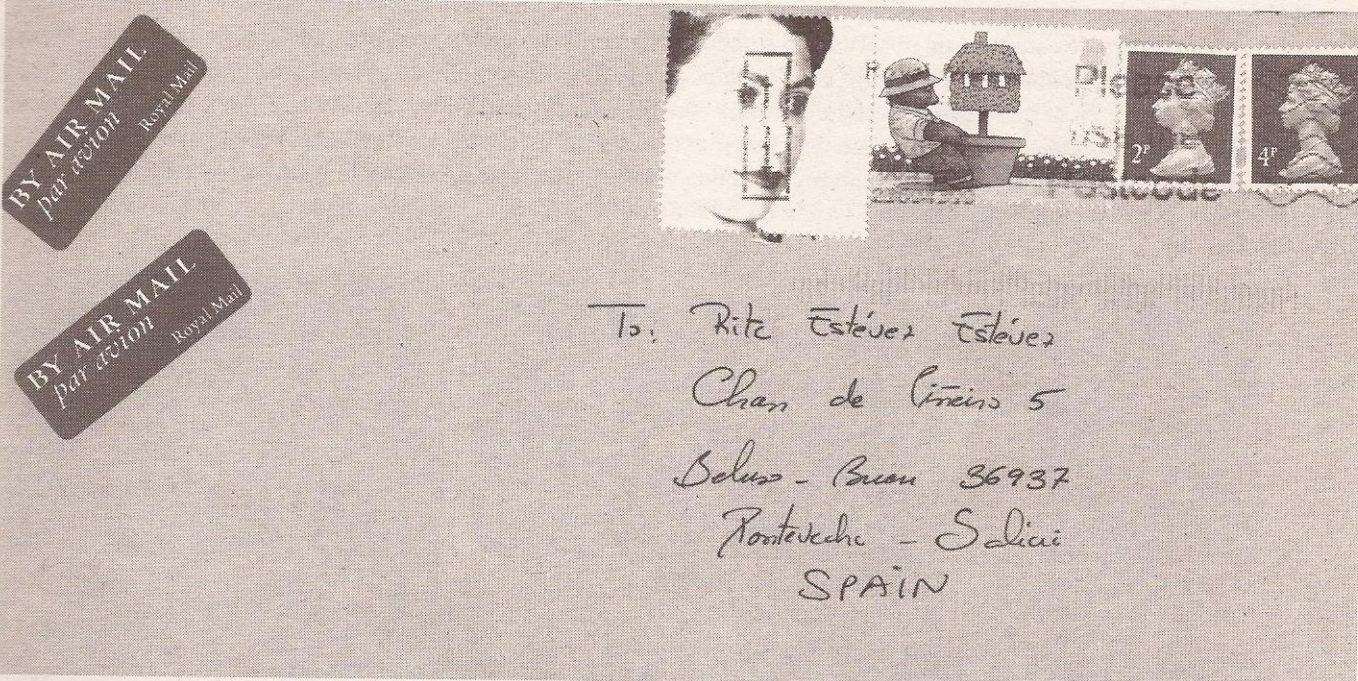 BY AIR MAIL
par avion
Royal Mail
BY AIR MAIL
par avion
Royal Mail
Please
Postcode
2P
4P
To: Rita Estévez Estévez
Chan de Piñeiro 5
Beluso - Bueu 36937
Pontevedra - Galicia
SPAIN